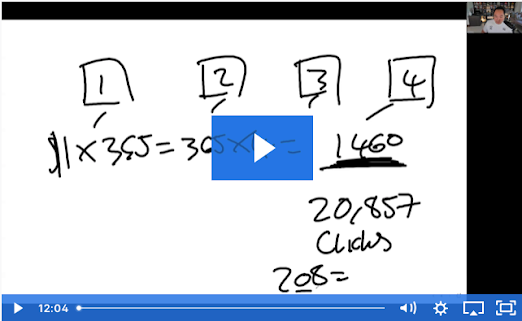 1 2 3 4
$1×365=365× = 1460
20,857
Clicks
208=
12:04